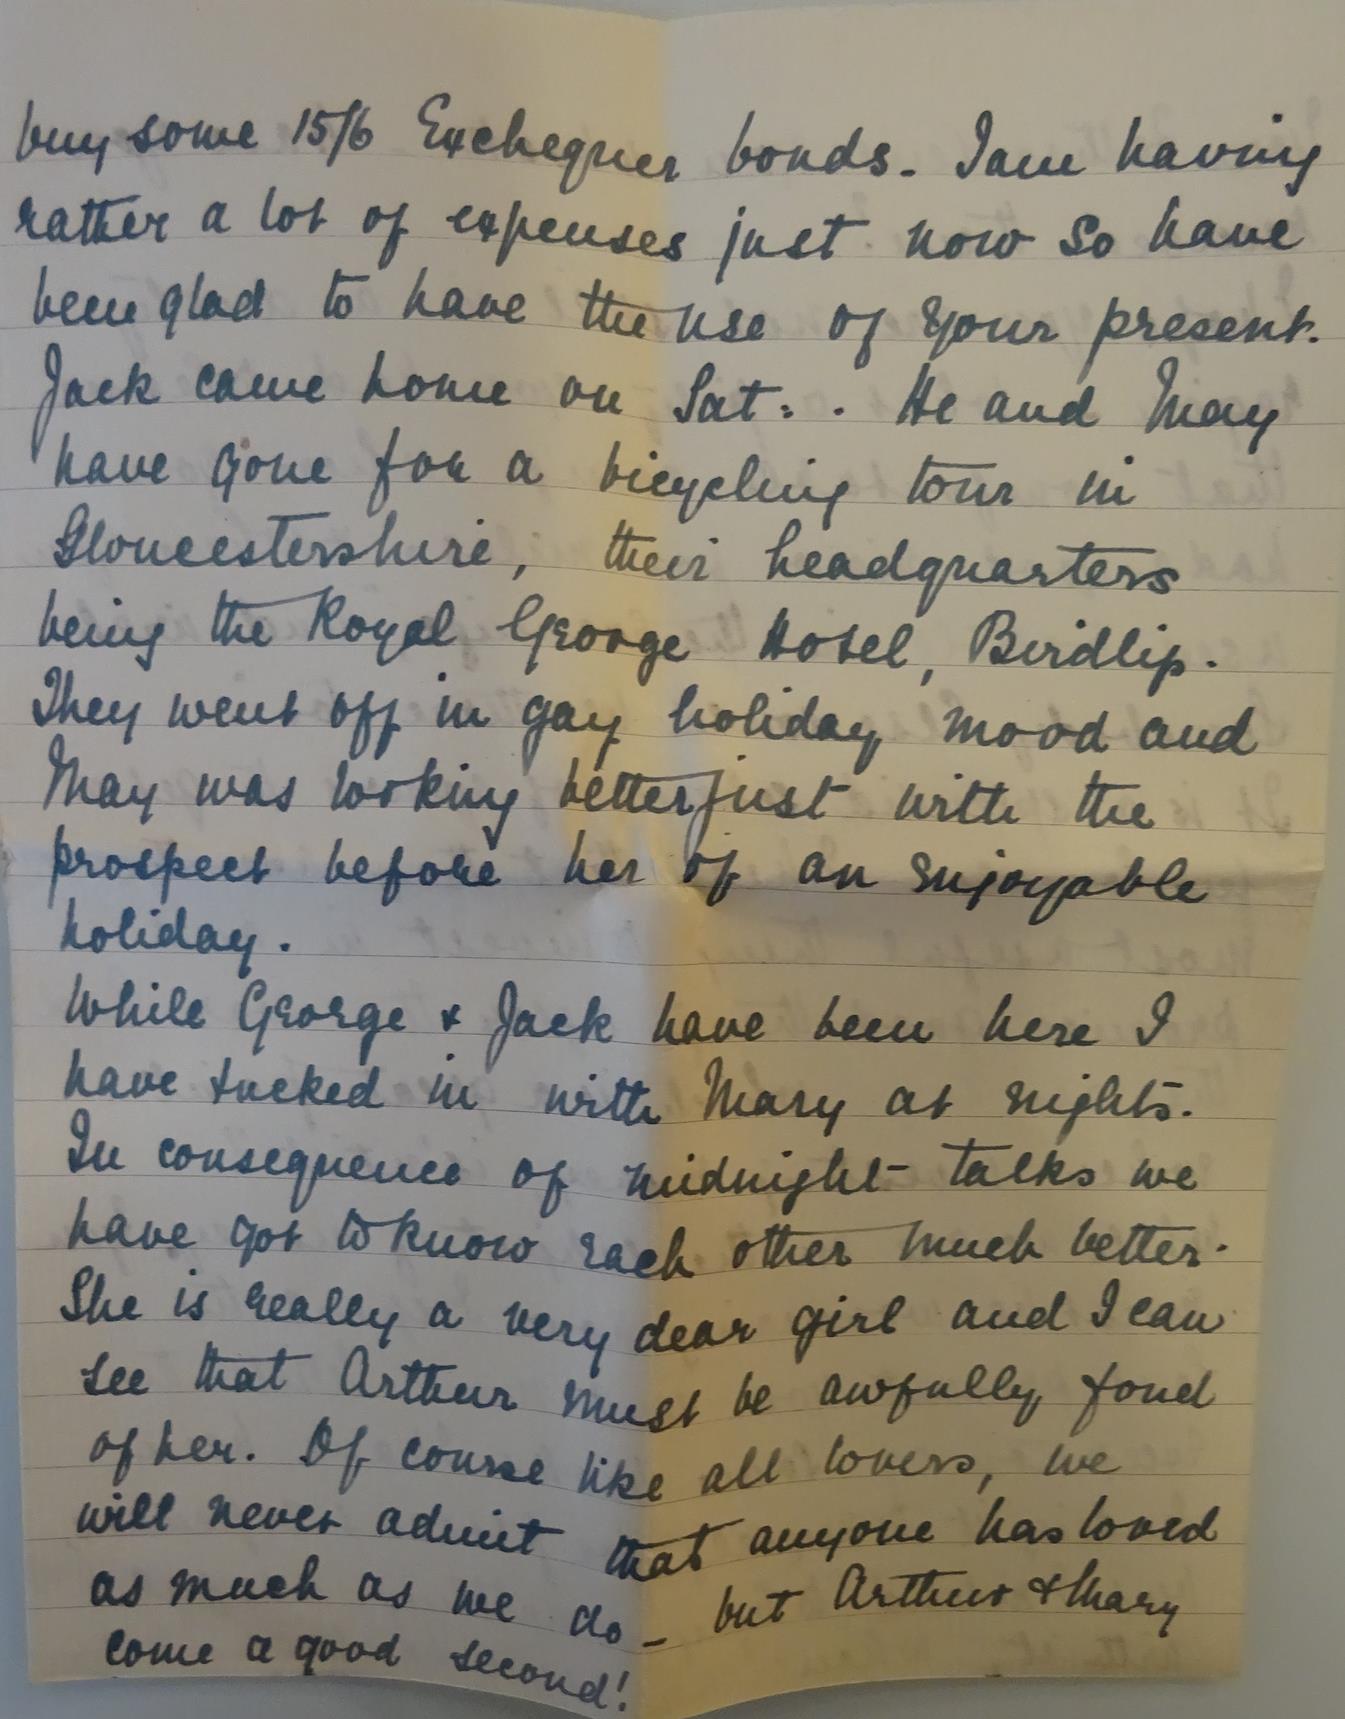 buy some 15/6 Exchequer bonds. I am having
rather a lot of expenses just now so have
been glad to have the use of your present.
Jack came home on Sat: . He and May
have gone for a bicycling tour in
Gloucestershire, their headquarters
being the Royal George Hotel, Birdlip.
They went off in gay holiday mood and
May was looking better just with the
prospect before her of an enjoyable
holiday.
While George & Jack have been here I
have tucked in with Mary at nights.
In consequence of midnight talks we
have got to know each other much better.
She is really a very dear girl and I can
see that Arthur must be awfully fond
of her. Of course like all lovers, we
will never admit that anyone has loved
as much as we do – but Arthur & Mary
come a good second!